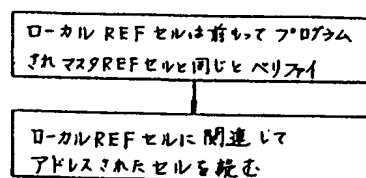 ローカルREFセルは前もってプログラム
されマスタREFセルと同じとベリファイ
ローカルREFセルに関連じて
アドレスされたセルを読む